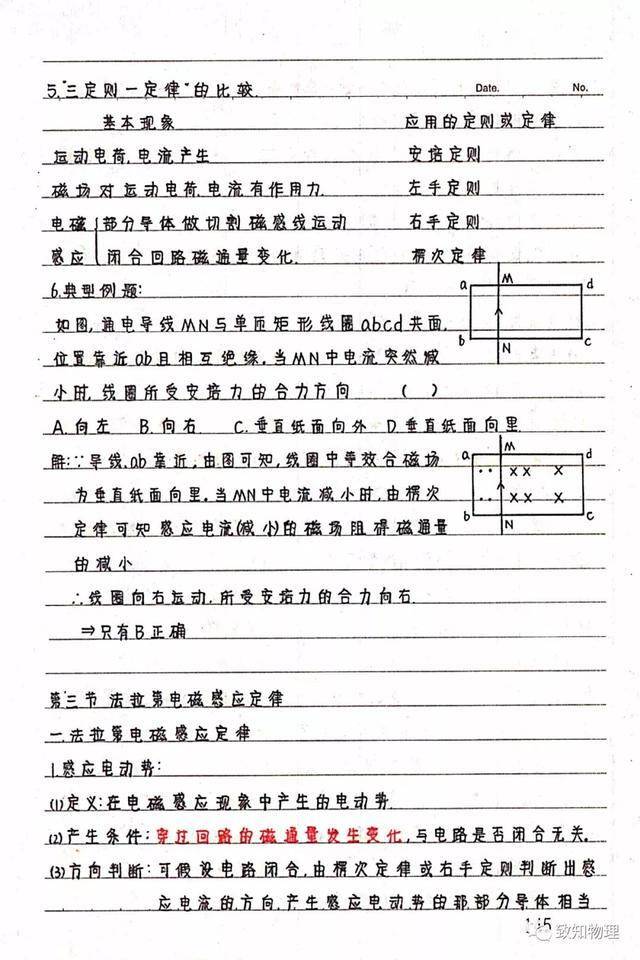 5."三定则一定律"的比较.
Date. No.
基本现象 应用的定则或定律
运动电荷.电流产生 安培定则
磁场对运动电荷.电流有作用力. 左手定则
电磁 部分导体做切割磁感线运动 右手定则
感应 闭合回路磁通量变化. 楞次定律
6.典型例题:
a M d
如图,通电导线MN与单匝矩形线圈abcd共面,
b N c
位置靠近ab且相互绝缘.当MN中电流突然减
小时,线圈所受安培力的合力方向 ( )
A.向左 B.向右 C.垂直纸面向外 D.垂直纸面向里.
a M d
解:∵导线.ab靠近,由图可知,线圈中等效合磁场
·· ×× ×
为垂直纸面向里.当MN中电流减小时,由楞次
·· ×× ×
b N c
定律可知感应电流(减小)的磁场阻碍磁通量
的减小
∴线圈向右运动.所受安培力的合力向右.
⇒只有B正确
第三节 法拉第电磁感应定律
一.法拉第电磁感应定律
1.感应电动势:
(1)定义:在电磁感应现象中产生的电动势.
(2)产生条件:穿过回路的磁通量发生变化,与电路是否闭合无关.
(3)方向判断:可假设电路闭合,由楞次定律或右手定则判断出感
应电流的方向.产生感应电动势的那部分导体相当
致知物理